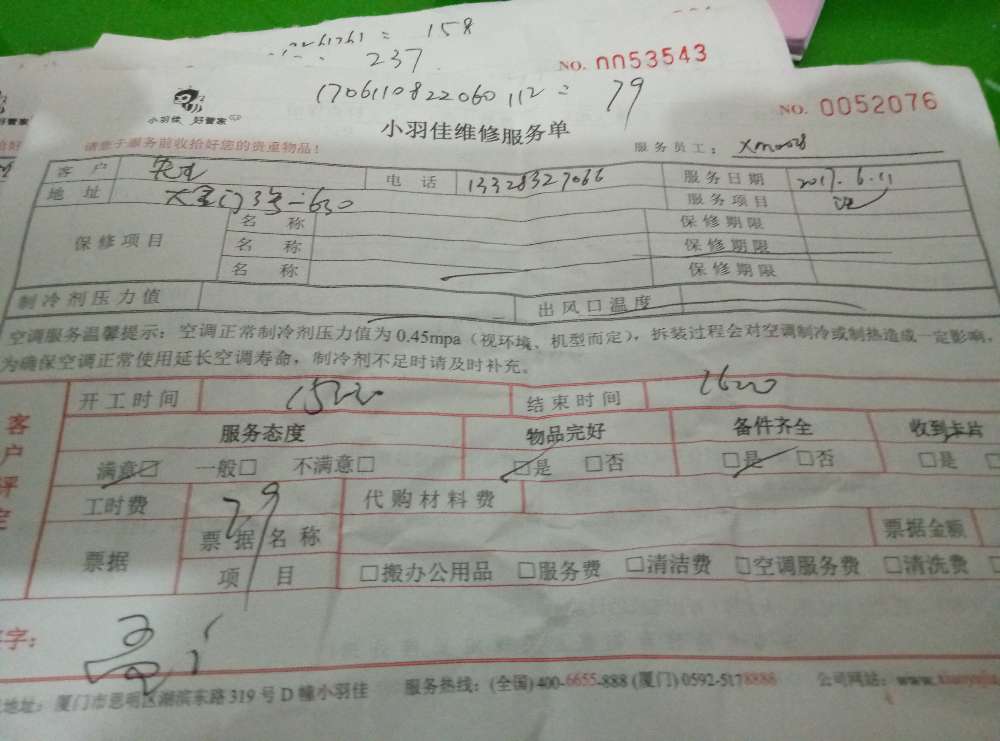 = 158
237
NO. 0053543
1706110822060112 = 79
NO. 0052076
小羽佳 好管家
小羽佳维修服务单
请意于服务前收拾好您的贵重物品！
服务员工：xm0028
客户 电话 13328327066 服务日期 2017.6.11
地址 服务项目
保修项目 名称 保修期限
名称 保修期限
名称 保修期限
制冷剂压力值 出风口温度
空调服务温馨提示：空调正常制冷剂压力值为0.45mpa（视环境、机型而定），拆装过程会对空调制冷或制热造成一定影响，
为确保空调正常使用延长空调寿命，制冷剂不足时请及时补充。
客户评定
开工时间 1520 结束时间 1620
服务态度 物品完好 备件齐全 收到卡片
满意☑ 一般□ 不满意□ ☑是 □否 ☑是 □否 □是
工时费 79 代购材料费
票据 票据名称 票据金额
项目 □搬办公用品 □服务费 □清洁费 □空调服务费 □清洗费
字：
地址：厦门市思明区湖滨东路319号D幢小羽佳 服务热线：(全国)400-6655-888 (厦门)0592-5178888 公司网站：www.